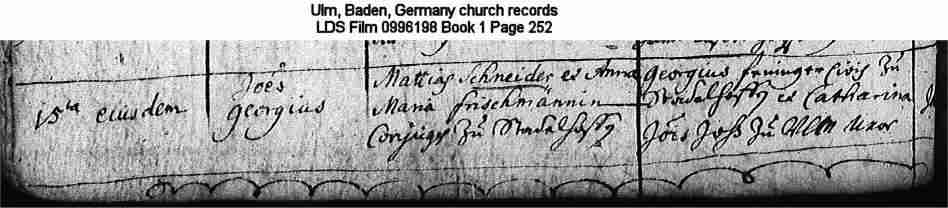 Ulm, Baden, Germany church records
LDS Film 0996198 Book 1 Page 252
15ta eiusdem
Joes
Georgius
Mattias Schneider et Anna
Maria Frischmännin
Conjuges zu Stadelhofen
Georgius civis zu
Stadelhofen et Catharina
Jois zu Ulm uxor